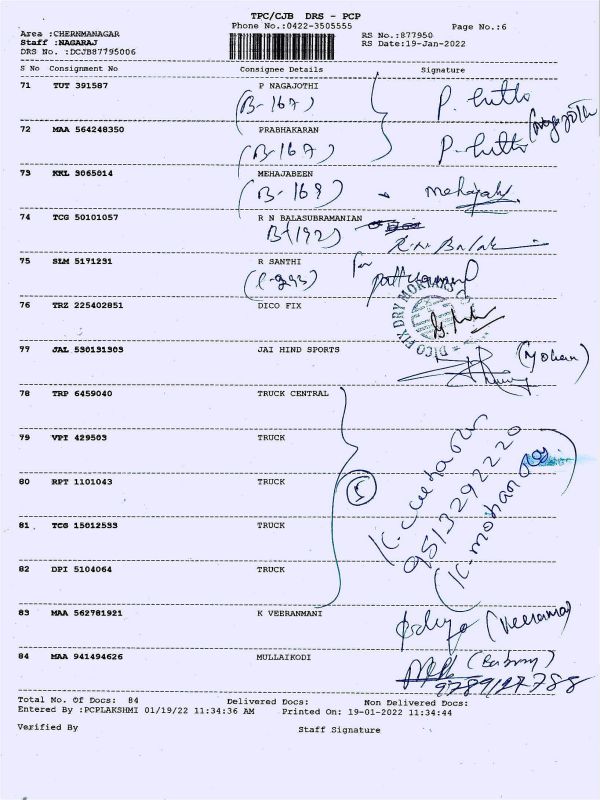 TPC/CJB DRS - PCP
Phone No.:0422-3505555
Page No.:6
Area :CHERNMANAGAR
RS No.:877950
Staff :NAGARAJ
RS Date:19-Jan-2022
DRS No. :DCJB87795006
S No Consignment No Consignee Details Signature
71 TUT 391587 P NAGAJOTHI
(B-167) P.
72 MAA 564248350 PRABHAKARAN
(B-167) P.
73 KKL 3065014 MEHAJABEEN
(B-168)
74 TCG 50101057 R N BALASUBRAMANIAN
B-(192)
75 SLM 5171231 R SANTHI
for
76 TRZ 225402851 DICO FIX
DICO FIX DRY MORTARS
77 JAL 530131303 JAI HIND SPORTS
(Mohan)
78 TRP 6459040 TRUCK CENTRAL
79 VPI 429503 TRUCK
80 RPT 1101043 TRUCK
5
81 TCG 15012533 TRUCK
82 DPI 5104064 TRUCK
83 MAA 562781921 K VEERANMANI
84 MAA 941494626 MULLAIKODI
Total No. Of Docs: 84 Delivered Docs: Non Delivered Docs:
Entered By :PCPLAKSHMI 01/19/22 11:34:36 AM Printed On: 19-01-2022 11:34:44
Verified By Staff Signature